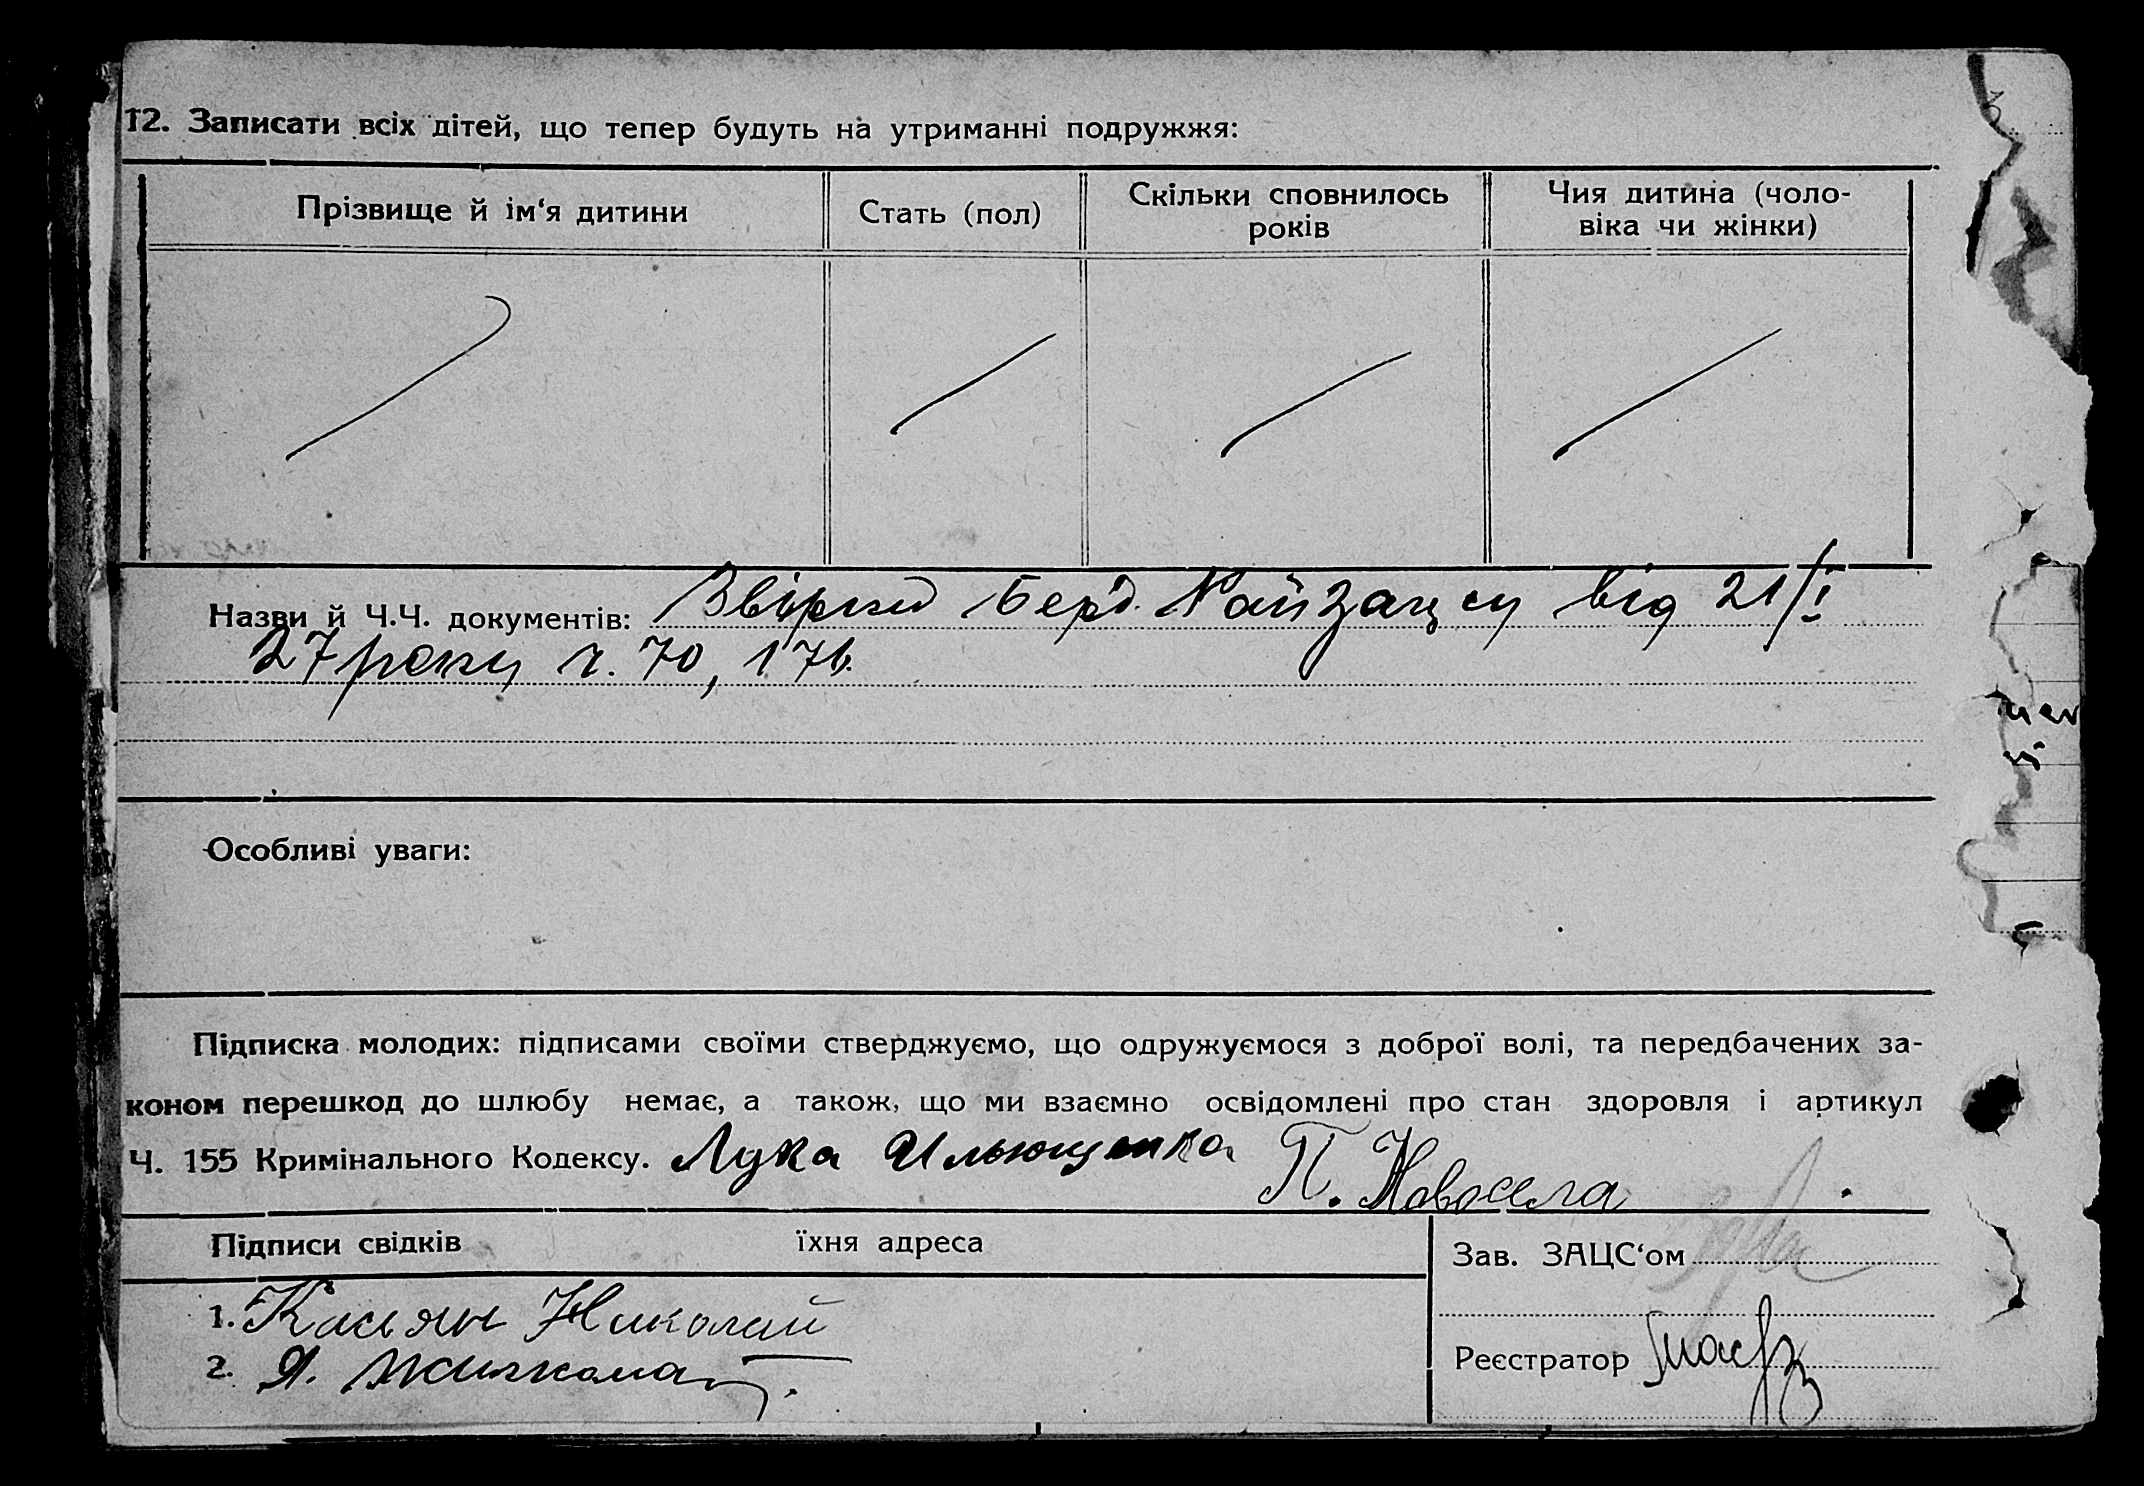 12. Записати всіх дітей, що тепер будуть на утриманні подружжя:
Прізвище й ім‘я дитини
Стать (пол)
Скільки сповнилось
років
Чия дитина (чоло-
віка чи жінки)
Назви й Ч.Ч. документів: Звірки Берд. Райзацсу від 21/I
27 року ч. 70, 176.
Особливі уваги:
Підписка молодих: підписами своїми стверджуємо, що одружуємося з доброї волі, та передбачених за-
коном перешкод до шлюбу немає, а також, що ми взаємно освідомлені про стан здоровля і артикул
Ч. 155 Кримінального Кодексу. Лука Ильющенко П. Новосела
Підписи свідків їхня адреса
Зав. ЗАЦС‘ом
1. Касьян Николай
2. Я.
Реєстратор